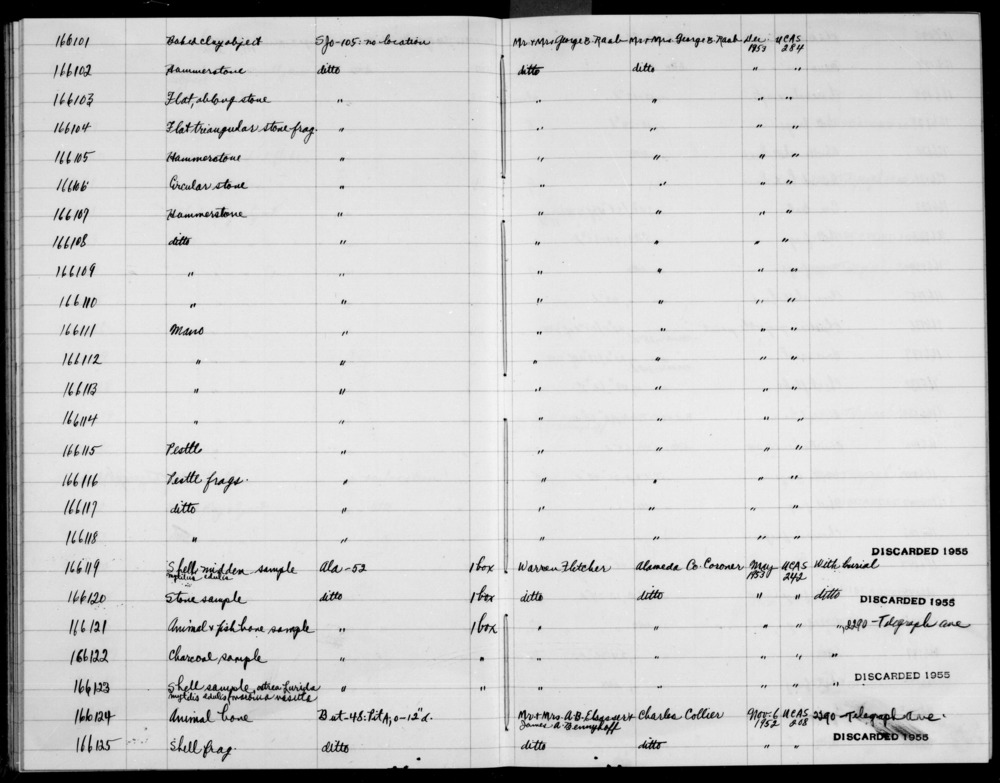 166101 Baked clay object SJo-105: no location Mr. + Mrs. George E. Raab Mr. + Mrs. George E. Raab Dec. 1953 UCAS 284
166102 Hammerstone ditto ditto ditto " "
166103 Flat, oblong stone " " " " "
166104 Flat triangular stone frag. " " " " "
166105 Hammerstone " " " " "
166106 Circular stone " " " " "
166107 Hammerstone " " " " "
166108 ditto " " " " "
166109 " " " " " "
166110 " " " " " "
166111 Mano " " " " "
166112 " " " " " "
166113 " " " " " "
166114 " " " " " "
166115 Pestle " " " " "
166116 Pestle frags. " " " " "
166117 ditto " " " " "
166118 " " " " " "
DISCARDED 1955
166119 Shell midden sample Ala-52 1 box Warren Fletcher Alameda Co. Coroner May 1953 UCAS 242 With burial
mytilus edulis
166120 Stone sample ditto 1 box ditto ditto " " ditto DISCARDED 1955
166121 Animal + fish bone sample " 1 box " " " " ", 2290 - Telegraph Ave
166122 Charcoal sample " " " " " " "
DISCARDED 1955
166123 Shell sample, ostrea lurida " " " " " " "
mytilus edulis, macoma nasuta
166124 Animal bone But-48: Pit A, 0-12" d. Mr. + Mrs. A. B. Elsasser + Charles Collier Nov-6 1952 UCAS 208 2290 - Telegraph Ave.
James A. Bennyhoff
DISCARDED 1955
166125 Shell frag. ditto ditto ditto " "